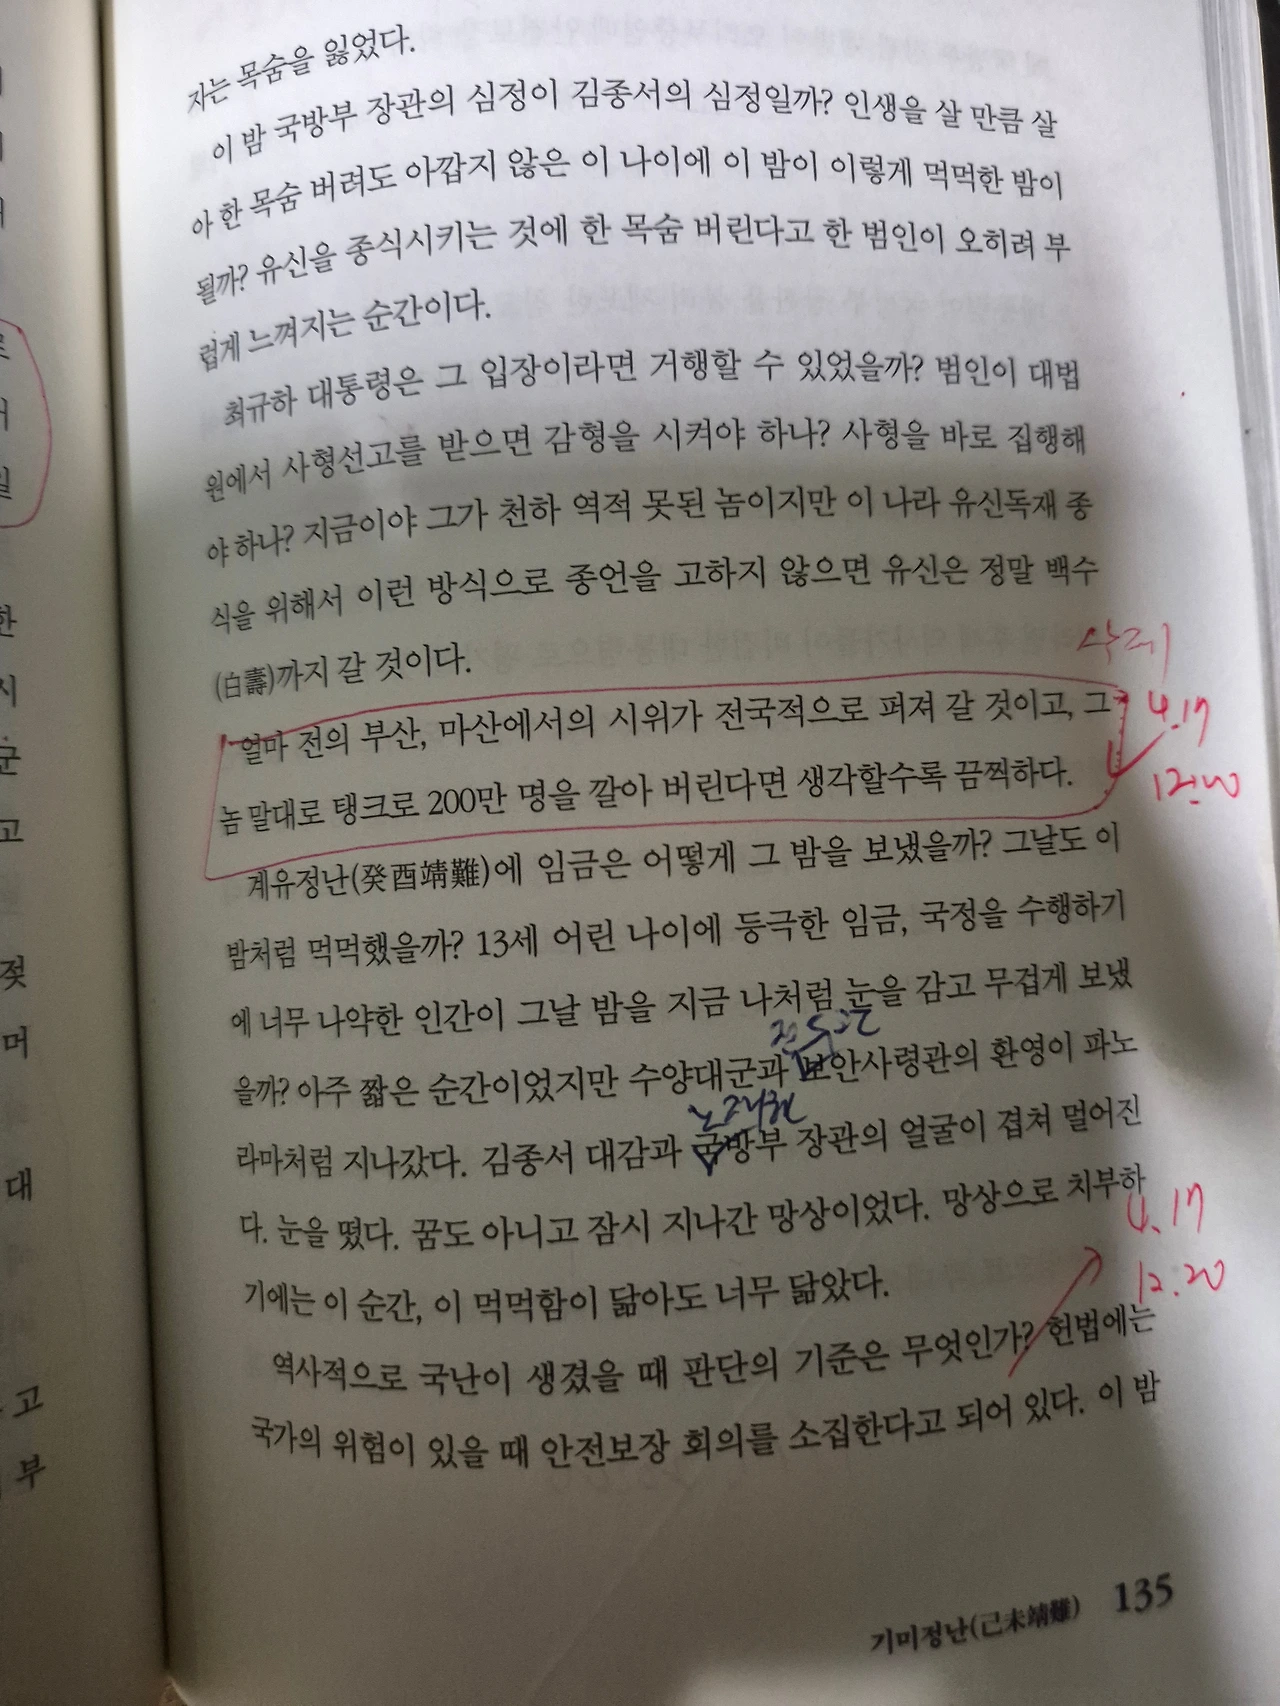 자는 목숨을 잃었다.
이 밤 국방부 장관의 심정이 김종서의 심정일까? 인생을 살 만큼 살
아 한 목숨 버려도 아깝지 않은 이 나이에 이 밤이 이렇게 먹먹한 밤이
될까? 유신을 종식시키는 것에 한 목숨 버린다고 한 범인이 오히려 부
럽게 느껴지는 순간이다.
최규하 대통령은 그 입장이라면 거행할 수 있었을까? 범인이 대법
원에서 사형선고를 받으면 감형을 시켜야 하나? 사형을 바로 집행해
야 하나? 지금이야 그가 천하 역적 못된 놈이지만 이 나라 유신독재 종
식을 위해서 이런 방식으로 종언을 고하지 않으면 유신은 정말 백수
(白壽)까지 갈 것이다.
삭제
얼마 전의 부산, 마산에서의 시위가 전국적으로 퍼져 갈 것이고, 그
4.17
놈 말대로 탱크로 200만 명을 깔아 버린다면 생각할수록 끔찍하다.
12:20
계유정난(癸酉靖難)에 임금은 어떻게 그 밤을 보냈을까? 그날도 이
밤처럼 먹먹했을까? 13세 어린 나이에 등극한 임금, 국정을 수행하기
에 너무 나약한 인간이 그날 밤을 지금 나처럼 눈을 감고 무겁게 보냈
을까? 아주 짧은 순간이었지만 수양대군과 보안사령관의 환영이 파노
라마처럼 지나갔다. 김종서 대감과 국방부 장관의 얼굴이 겹쳐 멀어진
다. 눈을 떴다. 꿈도 아니고 잠시 지나간 망상이었다. 망상으로 치부하
4.17
기에는 이 순간, 이 먹먹함이 닮아도 너무 닮았다.
12:20
역사적으로 국난이 생겼을 때 판단의 기준은 무엇인가? 헌법에는
국가의 위험이 있을 때 안전보장 회의를 소집한다고 되어 있다. 이 밤
기미정난(己未靖難) 135